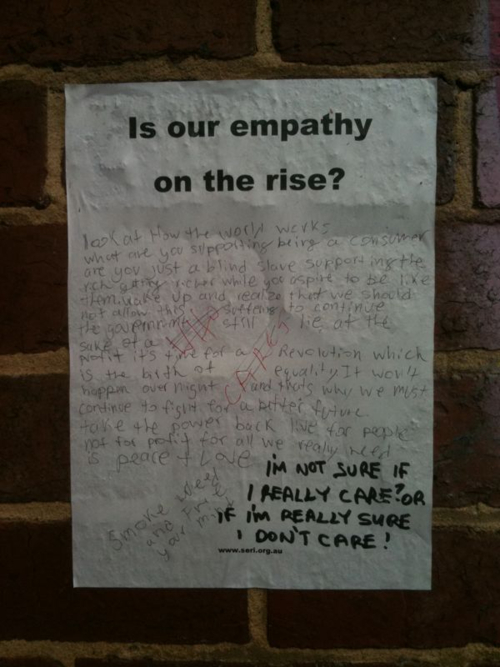 Is our empathy
on the rise?
look at How the world works
what are you supporting being a consumer
are you just a blind slave supporting the
rich getting richer while you aspire to be like
them. wake up and realize that we should
not allow this suffering to continue
the government still lie at the
sake of a
profit it's time for a Revolution which
is the birth of equality It won't
happen over night and thats why we must
continue to fight for a better future
take the power back live for people
not for profit for all we really need
is peace + Love
Smoke weed
and Free
your mind
I'M NOT SURE IF
I REALLY CARE? OR
IF I'M REALLY SURE
I DON'T CARE!
www.seri.org.au